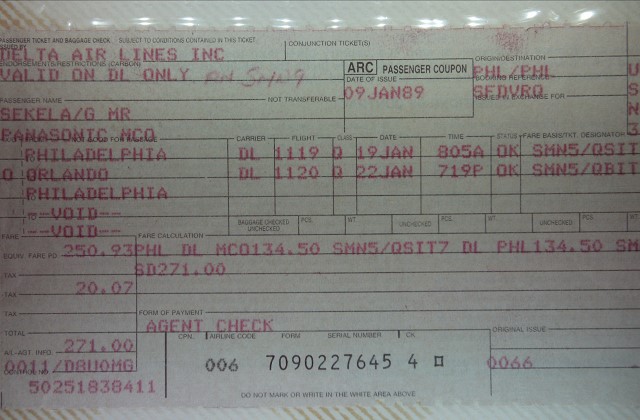 PASSENGER TICKET AND BAGGAGE CHECK SUBJECT TO CONDITIONS CONTAINED IN THIS TICKET
ISSUED BY
DELTA AIR LINES INC
CONJUNCTION TICKET(S)
ENDORSEMENTS/RESTRICTIONS (CARBON)
VALID ON DL ONLY
ARC PASSENGER COUPON
ORIGIN/DESTINATION
PHL/PHL
DATE OF ISSUE
09JAN89
BOOKING REFERENCE
SEDVRQ
ISSUED IN EXCHANGE FOR
PASSENGER NAME
NOT TRANSFERABLE
SEKELA/G MR
PANASONIC MCO
NOT GOOD FOR PASSAGE
CARRIER FLIGHT CLASS DATE TIME STATUS FARE BASIS/TKT. DESIGNATOR
PHILADELPHIA DL 1119 Q 19JAN 805A OK SMN5/QSIT
O ORLANDO DL 1120 Q 22JAN 719P OK SMN5/QBIT
PHILADELPHIA
TO --VOID--
--VOID--
BAGGAGE CHECKED UNCHECKED PCS. WT. UNCHECKED PCS. WT. UNCHECKED PCS.
FARE FARE CALCULATION
250.93 PHL DL MCO134.50 SMN5/QSIT7 DL PHL134.50 SM
EQUIV. FARE PD.
SD271.00
TAX
20.07
TAX
TAX FORM OF PAYMENT
AGENT CHECK
TOTAL
271.00
CPN. AIRLINE CODE FORM SERIAL NUMBER CK
ORIGINAL ISSUE
006 7090227645 4
0066
AL/AGT. INFO.
0011/D8UOMG
CONTROL NO.
50251838411
DO NOT MARK OR WRITE IN THE WHITE AREA ABOVE